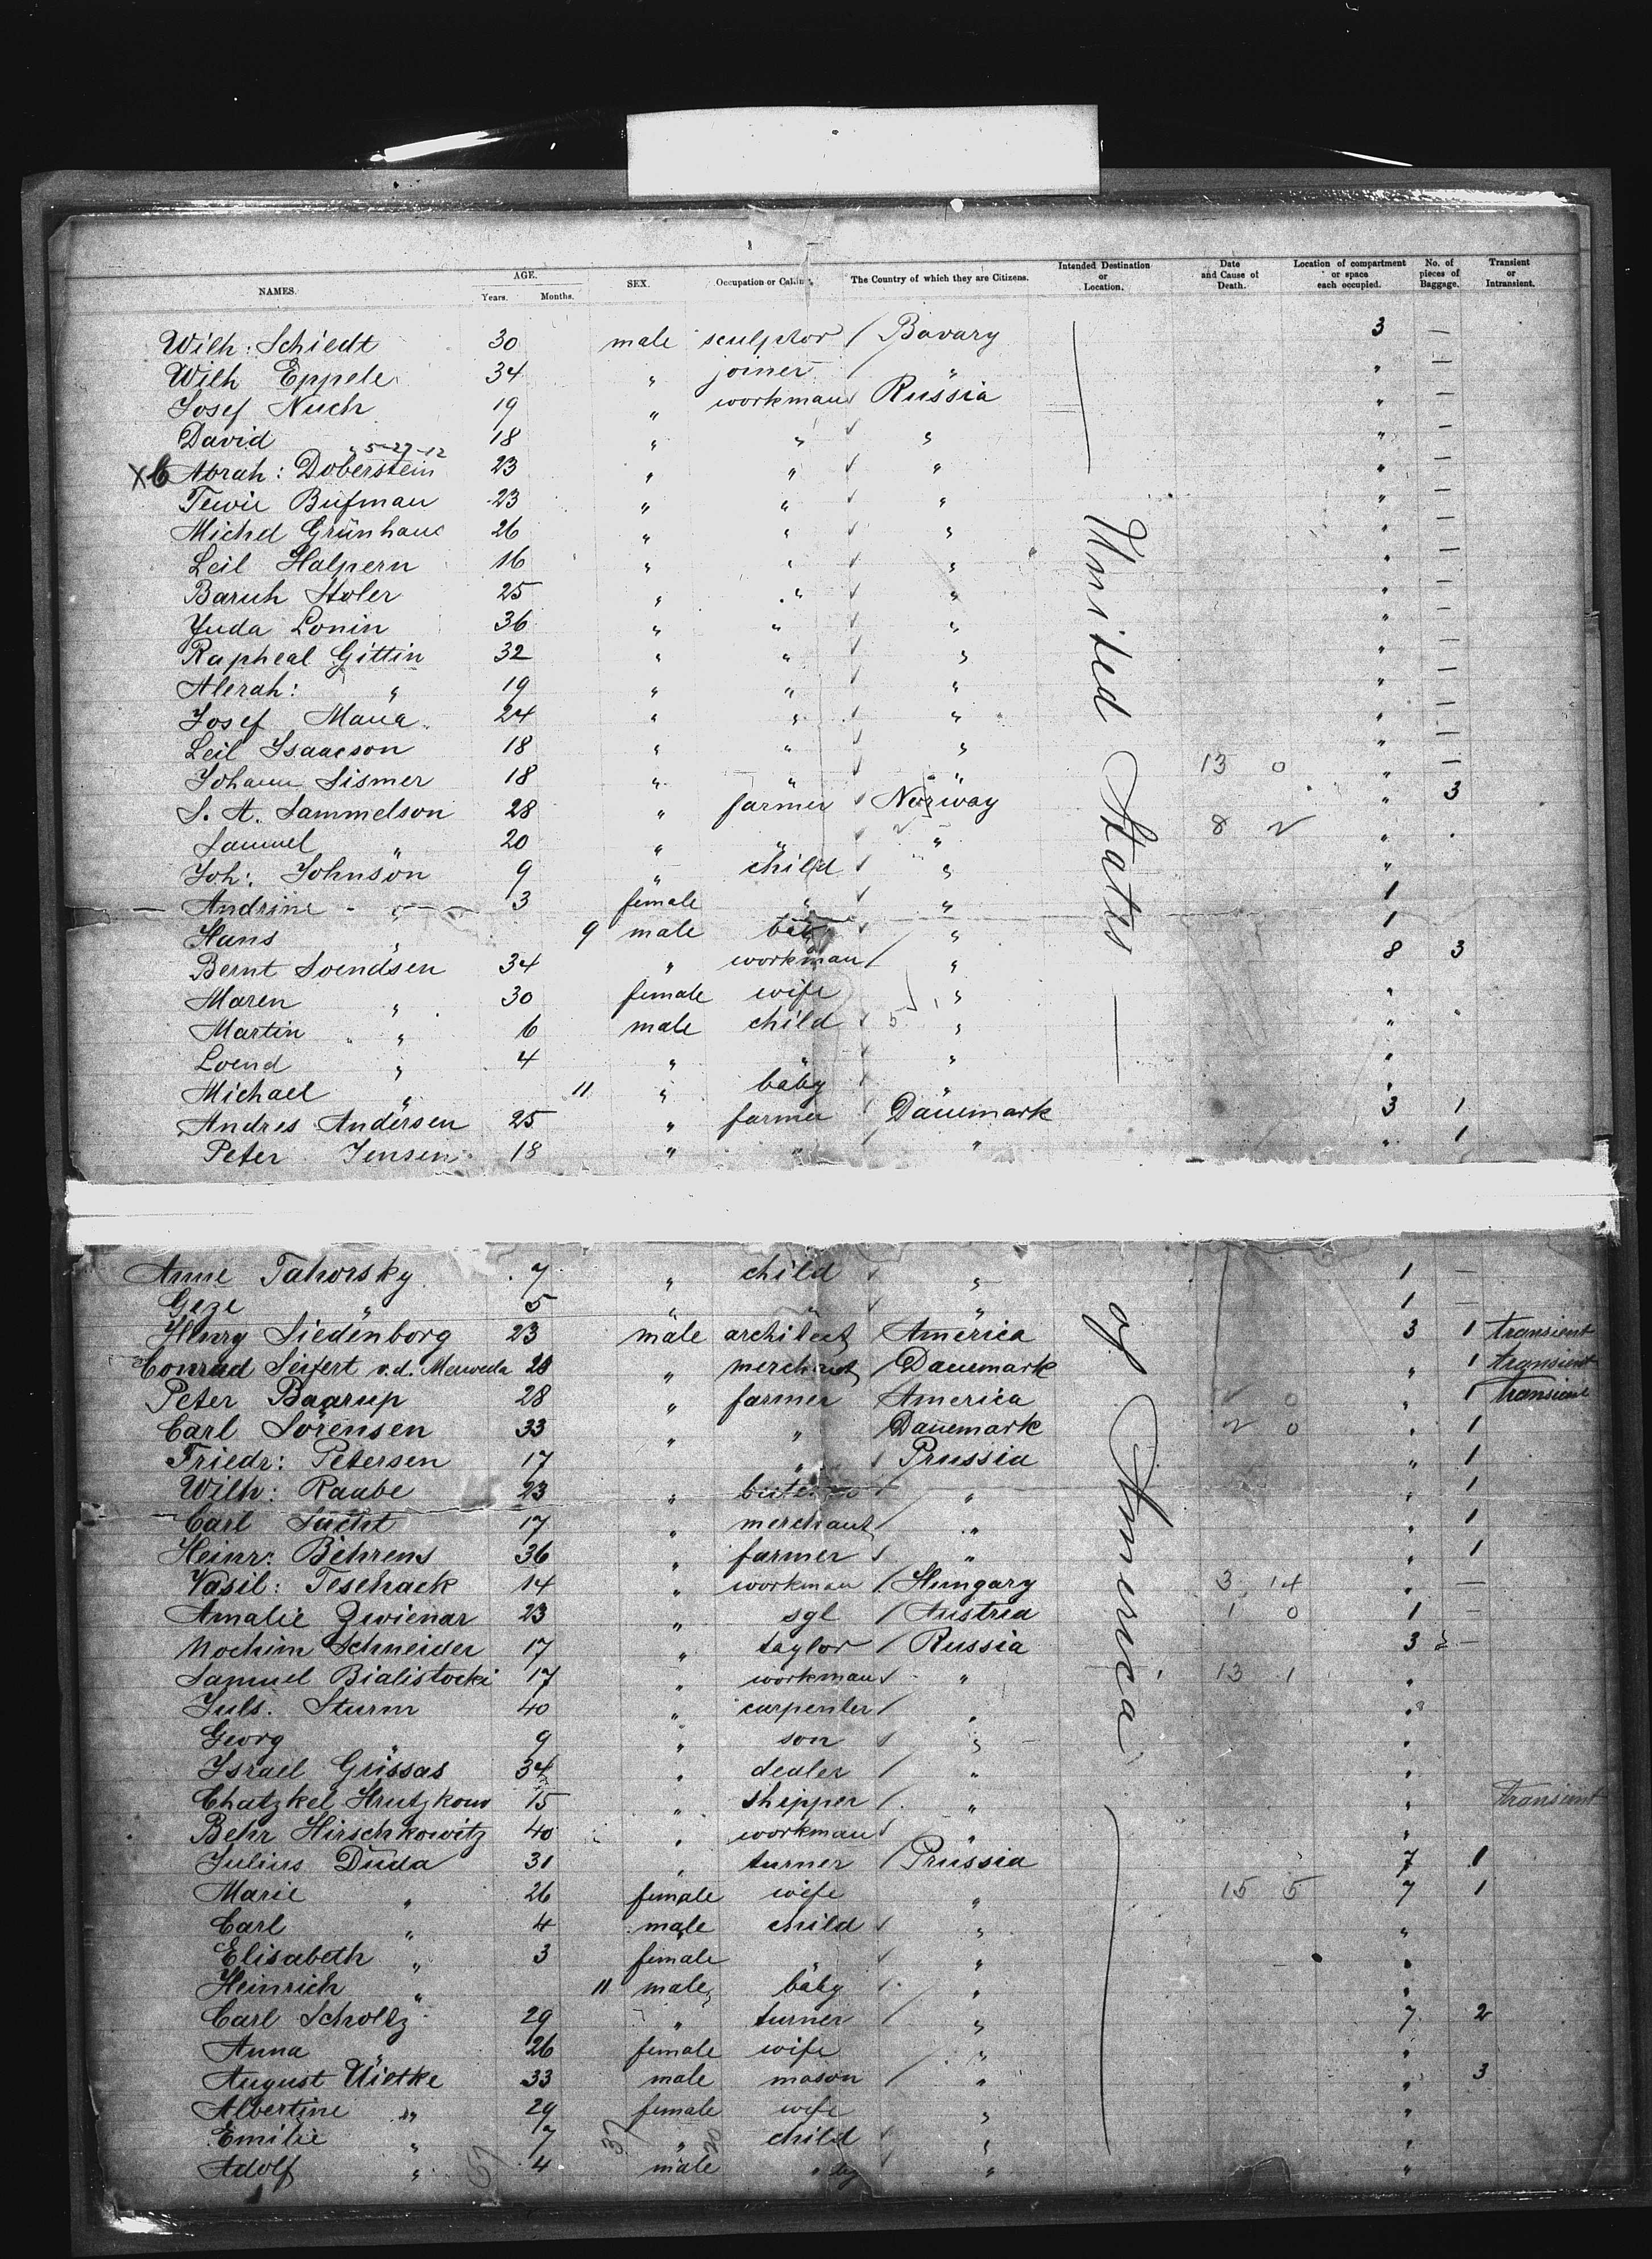 NAMES. AGE. Years. Months. SEX. Occupation or Calling. The Country of which they are Citizens. Intended Destination or Location. Date and Cause of Death. Location of compartment or space each occupied. No. of pieces of Baggage. Transient or Intransient.
Wilh: Schiedt 30 male sculptor / Bavary 3 —
Wilh Eppele 34 " joiner / " " —
Josef Nuch 19 " workman Russia " —
David 18 " " " " —
5-27-12
X Abrah: Doberstein 23 " " " " —
Tewie Bufman 23 " " " " —
Michel Grünhaus 26 " " " " —
Leil Halpern 16 " " " " —
Baruh Stoler 25 " " " " —
Juda Lonin 36 " " " " —
Rapheal Gittin 32 " " " " —
Alerah: " 19 " " " " —
Josef 24 " " " " —
Leil Isaacson 18 " " " " —
Johann Sismer 18 " " " 13 0 " —
S. A. Sammelson 28 " farmer Norway " 3
Samuel " 20 " " " 8 2 "
Joh: Johnson 9 " child " "
Andrine " 3 female " " 1
Hans " 9 male baby " 1
Bernt Svendsen 34 " workman / " 8 3
Maren " 30 female wife " "
Martin " 6 male child 5 " " "
" 4 " " " "
Michael " 11 " baby " "
Andres Andersen 25 " farmer Dänemark 3 1
Peter Jensen 18 " " / " " 1
United States
Anne Tahorsky 7 " child " 1 —
Geze " 5 " " " 1 —
Henry Siedenborg 23 male architect America 3 1 transient
Conrad Seifert v.d. Merweda 28 " merchant / Danemark " 1 transient
Peter Baarup 28 " farmer America 2 0 " 1 transient
Carl Sörensen 33 " " Danemark 2 0 " 1
Friedr: Petersen 17 " Prussia " 1
Wilh: Raabe 23 " " " 1
Carl Sucht 17 " merchant / " " 1
Heinr: Behrens 36 " farmer " " 1
Vasil: Teschack 14 " workman / Hungary 3 14 " —
Amalie Zwienar 23 " sgl / Austria 1 0 1 —
Nochim Schneider 17 " taylor / Russia 3 —
Samuel Bialistocki 17 " workman " 13 1 "
Juls. Sturm 40 " carpenter / " "
Georg " 9 " son " "
Israel Grüssas 34 " dealer / " "
Chatzkel Hrutzkow 15 " shipper / " " transient
Behr Hirschkowitz 40 " workman " "
Julius Duda 31 " turner / Prussia 7 1
Marie " 26 female wife " 15 5 7 1
Carl " 4 male child " "
Elisabeth " 3 female " " "
Heinrich " 11 male baby " "
Carl Scholtz 29 " turner / " 7 2
Anna " 26 female wife " "
August Üietke 33 male mason / " " 3
Albertine " 29 female wife " "
Emilie " 7 " child " "
Adolf " 4 male " " "
of America
67 37 20